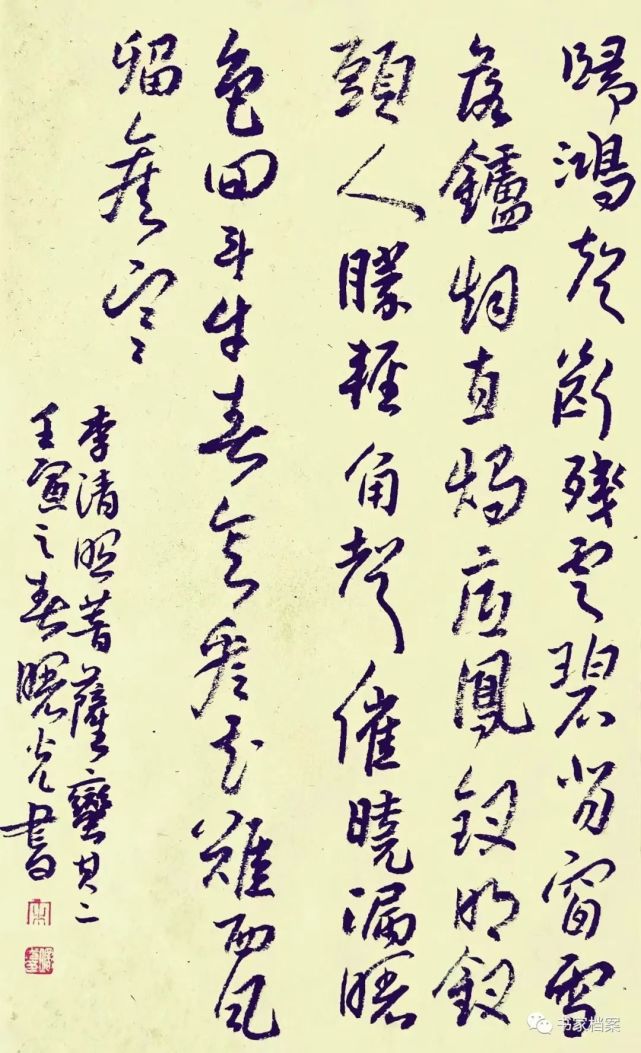 歸鴻聲斷殘雲碧背窗雪
落鑪烟直燭底鳳釵明釵
頭人勝輕角聲催曉漏曙
色回斗牛春意看花難西風
留舊寒
李清照菩薩蠻其二
壬寅之春曙光書
书家档案